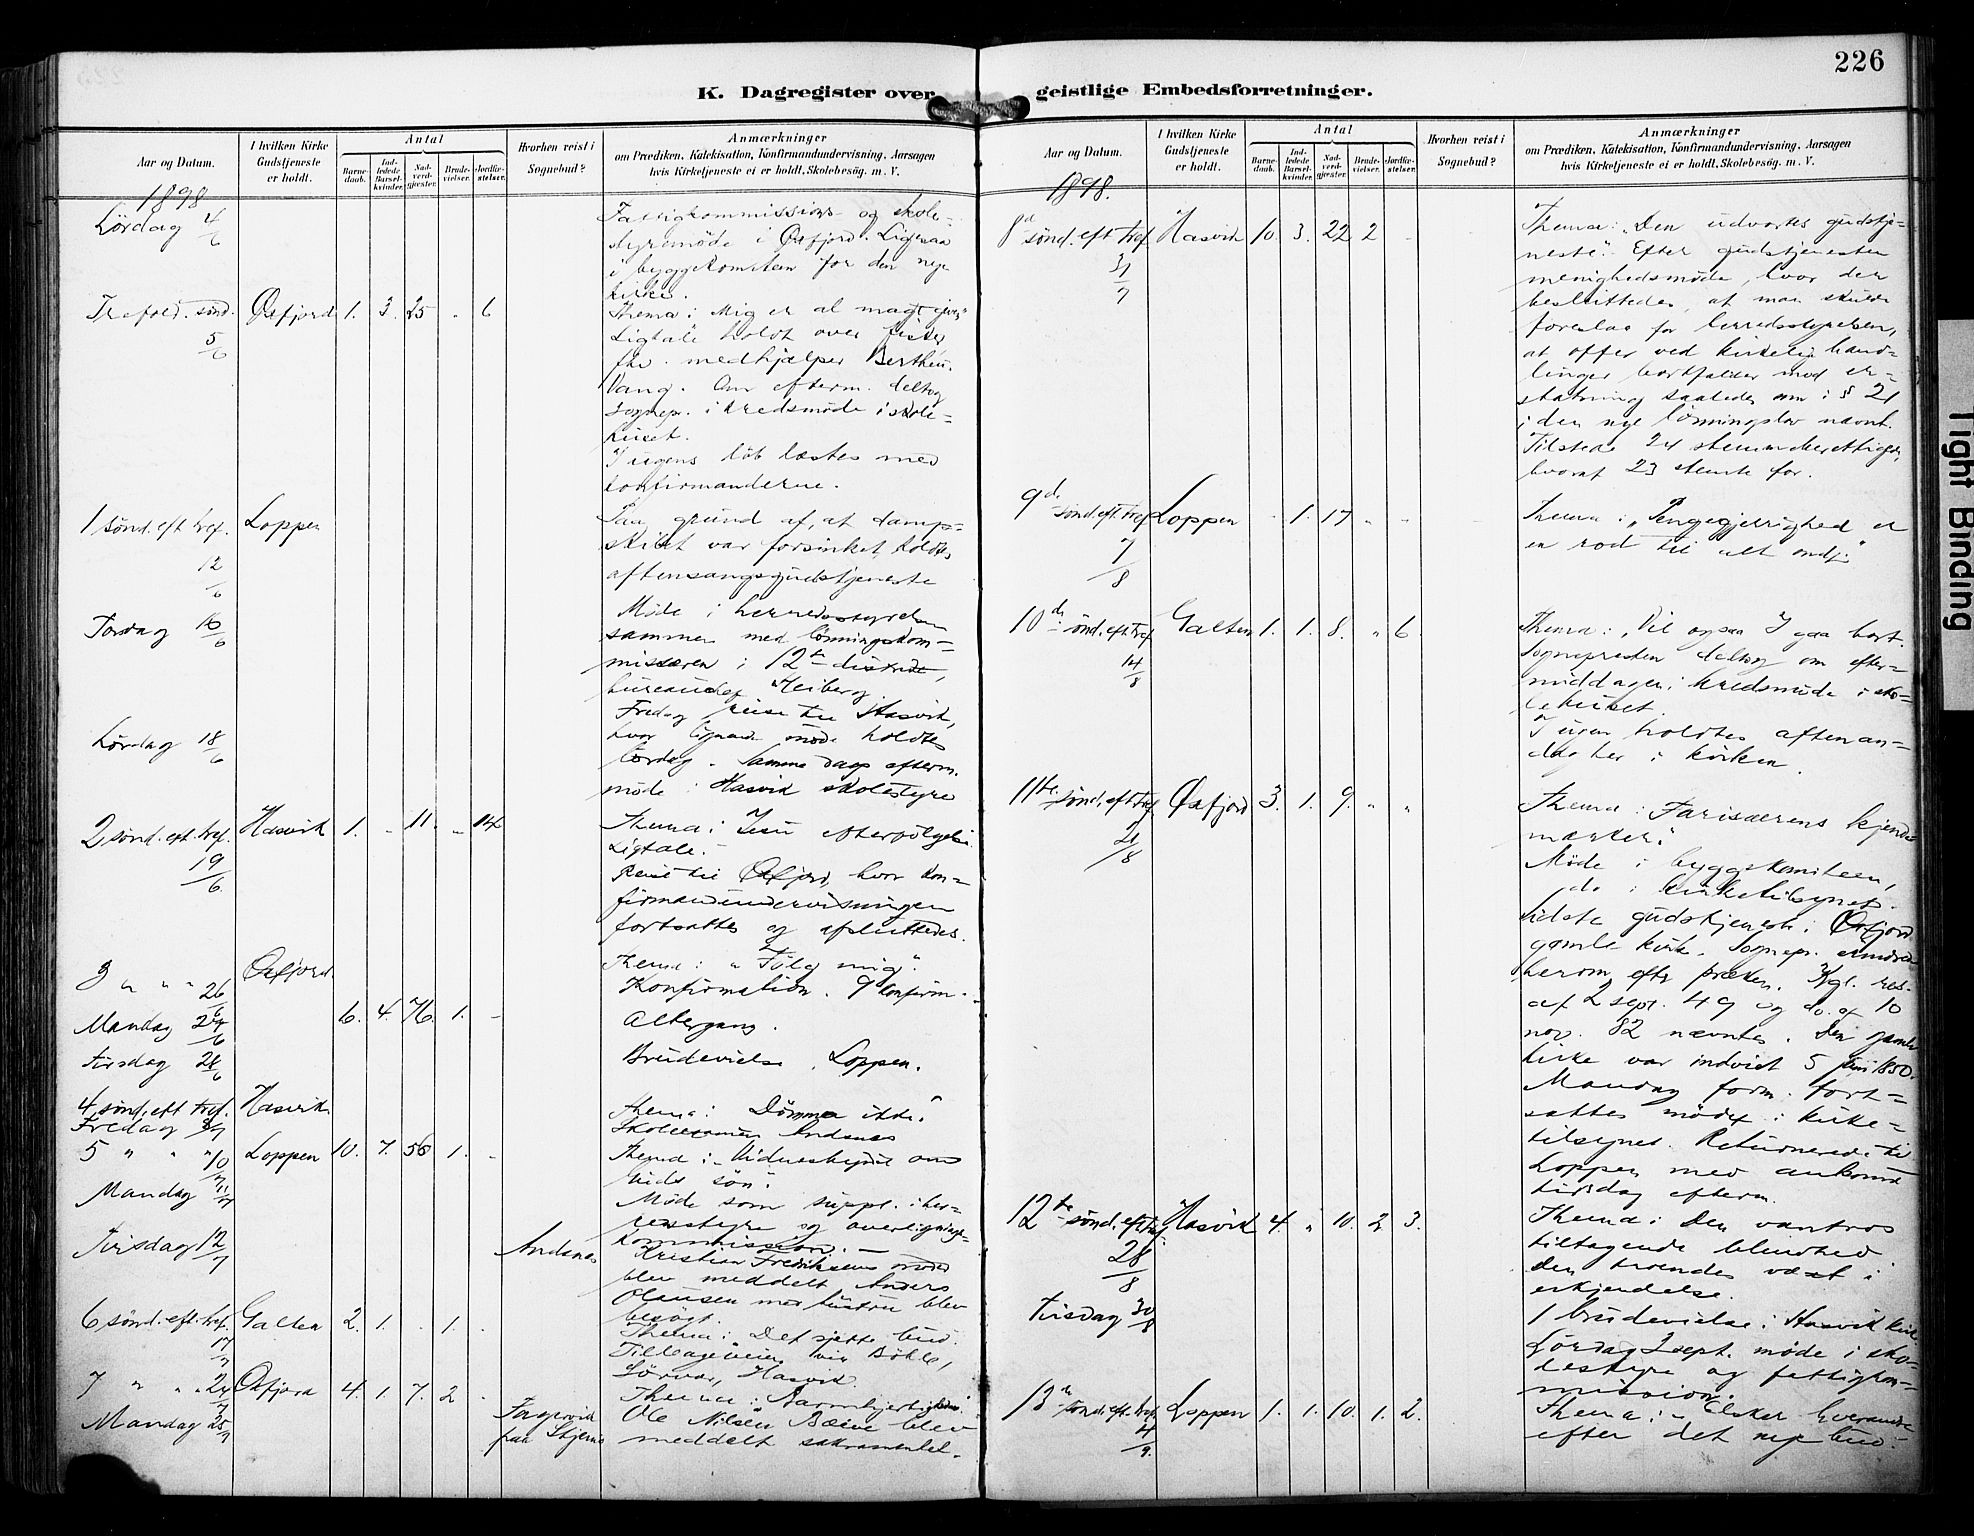 226
K. Dagregister over
geistlige Embedsforretninger.
Aar og Datum.
I hvilken Kirke
Gudstjeneste
er holdt.
Antal
Barne-
daab.
Ind-
ledede
Barsel-
kvinder.
Nad-
verd-
gjester.
Brude-
vielser.
Jordfæ-
stelser.
Hvorhen reist i
Sognebud?
Anmærkninger
om Prædiken, Katekisation, Konfirmandundervisning, Aarsagen
hvis Kirketjeneste ei er holdt, Skolebesøg. m. V.
1898
Lördag 4/6
Fattigkommissions- og skole-
styremöde i Öxfjord. Ligesaa
i byggekomiteen for den nye
kirke.
Trefold. sönd. Öxfjord 1. 3. 25 " 6
5/6
Thema: Mig er al magt given"
Ligtale holdt over
fhv. medhjælper Bertheu.
Vang. Om efterm. deltog
sognepr. i kredsmöde i skole-
huset.
I ugens löb læstes med
konfirmanderne.
1 sönd. eft. tref. Loppen
12/6
Paa grund af, at damp-
skibet var forsinket, holdtes
aftensangsgudstjeneste
Torsdag 16/6
Möde i herredsstyrelsen
sammen med lönningskom-
missæren i 12te distrikt,
bureauchef Heiberg.
Fredag reise til Hasvik,
Lördag 18/6
hvor lignende möde holdtes
lördag. Samme dags efterm.
möde i Hasvik skolestyre
2 sönd. eft. tref. Hasvik 1. " 11. " 14
19/6
Thema: Jesu efterfölgelse
Ligtale.
Reise til Öxfjord, hvor kon-
firmandundervisningen
fortsattes og afsluttedes.
3 " " " 26/6 Öxfjord
Thema: "Fölg mig".
Konfirmation. 9 konfirm.
Mandag 27/6 6. 4. 76. 1. -
Altergang.
Tirsdag 28/6
Brudevielse. Loppen.
4 sönd. eft. tref. Hasvik
Thema: Dömmer ikke"
Fredag
Skoleexamen Andsnes
5 " " " 10/7 Loppen 10. 7. 56 1. -
Thema: Vidnesbyrdet om
Guds sön.
Mandag 11/7
Möde som suppl. i her-
redsstyre og overlignings-
kommission. —
Tirsdag 12/7 Andsnes
Kristian Fredriksens
blev meddelt Anders
Olausen med hustru blev
besögt.
6 sönd. eft. tref. Galten 2. 1. . 1. .
17/7
Thema: Det sjette bud.
Tilbageveien via Böhle,
Sörvær, Hasvik.
7 " " " 24/7 Öxfjord 4. 1. 7. 2 .
Thema: Barmhjertighed.
Mandag 25/7 Fagervik
paa Stjernö
Ole Nilsen Bæive blev
meddelt sakramentet.
Aar og Datum.
I hvilken Kirke
Gudstjeneste
er holdt.
Antal
Barne-
daab.
Ind-
ledede
Barsel-
kvinder.
Nad-
verd-
gjester.
Brude-
vielser.
Jordfæ-
stelser.
Hvorhen reist i
Sognebud?
Anmærkninger
om Prædiken, Katekisation, Konfirmandundervisning, Aarsagen
hvis Kirketjeneste ei er holdt, Skolebesøg. m. V.
1898.
8d sönd. eft tref. Hasvik 10. 3. 22 2 -
31/7
Thema: "Den udvortes gudstje-
neste". Efter gudstjenesten
menighedsmöde, hvor der
besluttedes, at man skulde
foreslaa for herredsstyrelsen,
at offer ved kirkelig hand-
linger bortfalder mod er-
statning saaledes om i § 21
i den nye lönningslov nævnt.
Tilstede 24 stemmeberettigede,
hvoraf 23 stemte for.
9de sönd. eft. tref. Loppen - 1. 17 " -
7/8
Thema: "Pengegjerrighed er
en rod til alt ondt".
10de sönd. eft. tref. Galten 1. 1. 8. " 6.
14/8
Thema: "Vil ogsaa I gaa bort.
Sognepresten deltog om efter-
middagen i kredsmöde i sko-
lehuset.
I ugen holdtes aftenan-
dagter i kirken.
11te sönd. eft. tref. Öxfjord 3. 1. 9. " "
21/8
Thema: Farisæerens kjende-
mærker".
Möde i byggekomiteen,
do i kirketilsynet.
Sidste gudstjeneste i Öxfjord
gamle kirke. Sognepr. erindrede
herom efter præken. Kgl. res.
af 2 sept. 49 og do. af 10
nov. 82 nævntes. Den gamle
kirke var indviet 5 juni 1850.
Mandag form. fort-
sattes mödet i kirke-
tilsynet. Returnerede til
Loppen med ankomst
tirsdag efterm.
12te sönd. eft tref Hasvik 4. " 10. 2 3.
28/8
Thema: Den vantros
tiltagende blindhed
den troendes vækst i
erkjendelse.
Tirsdag 30/8
1 brudevielse i Hasvik kirke
Lördag 3 sept. möde i sko-
lestyre og fattigkom-
mission.
13de sönd. eft. tref. Loppen 1. 1. 10. 1. 2.
4/9.
Thema: "Elsker hverandre
efter det nye bud."
Tight Binding